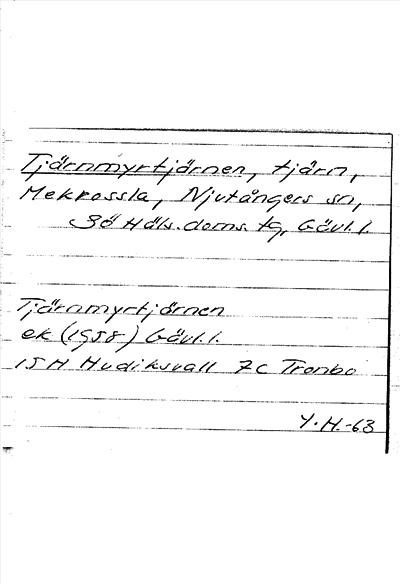 Tjärnmyrtjärnen, tjärn,
Mekrossla, Njutångers sn,
Sö Häls. doms. tg, Gävl. l.
Tjärnmyrtjärnen
ek (1958) Gävl. l.
15H Hudiksvall 7c Tronbo
Y.H.-63